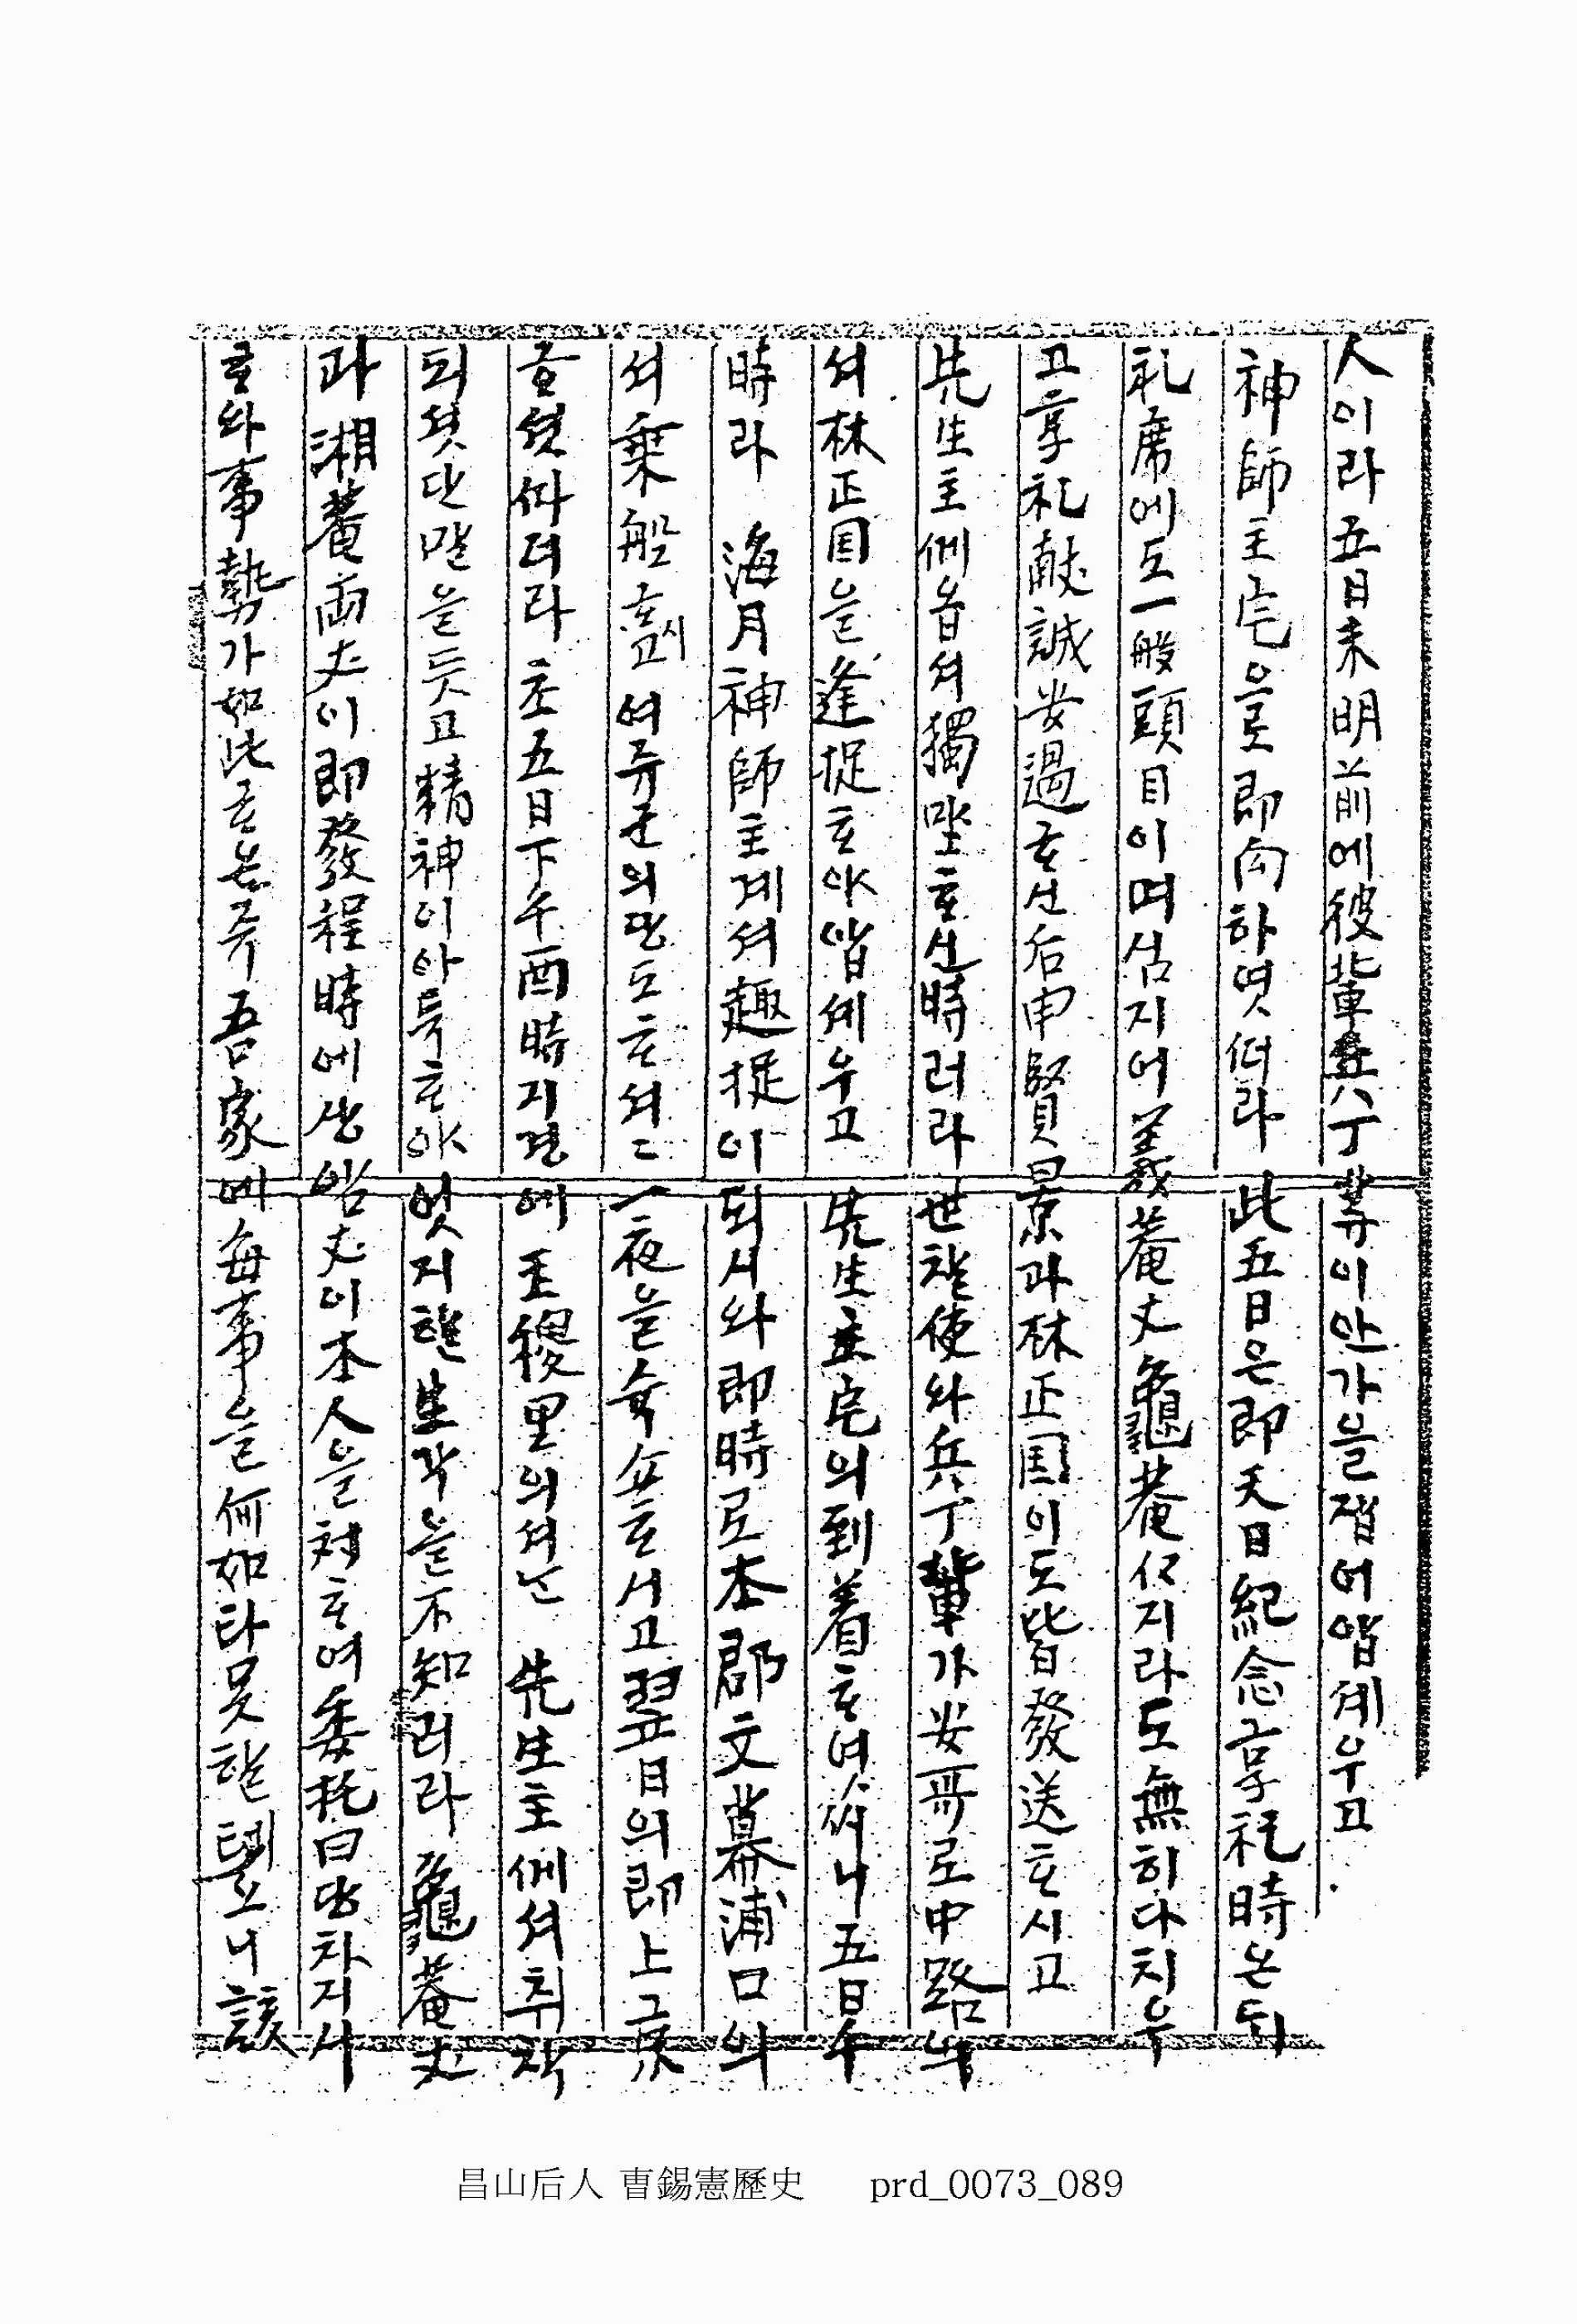 人이라 五日未明前에 彼輩兵丁等이 안가을 잡어 압셰우고
神師主宅으로 即向하엿떠라 此五日은 即天日紀念享礼時온되
礼席에도 一般頭目이며 심지어 義菴丈 龜菴仗지라도 無히 다치우
고 享礼献誠 安過호신 后 申賢景과 林正国이도 皆發送호시고
先生主께옵셔 獨坐호신 時러라 世찰使와 兵丁輩가 安哥로 中路의
셔 林正国을 逢捉호야 압셰우고 先生主宅의 到着호여 니 五日午
時라 海月神師主계셔 趣捉이 되시와 即時로 本郡 文幕浦口의
셔 乘船호시고 여쥬군의 당도호셔 一夜을 슉쇼호시고 翌日의 即上京
호셧따더라 초五日下午酉時지경에 王稷里의셔 先生主께셔 취착
되셧단 말을 듯고 精神이 아득호야 엇지할 生각을 不知러라 龜菴丈
과 湘菴兩丈이 即發程時에 암丈이 本人을 対호여 委托曰 당차지사
호와 事勢가 如此 吾家에 每事을 何如타 못할 니 該
昌山后人 曺錫憲歷史 prd_0073_089